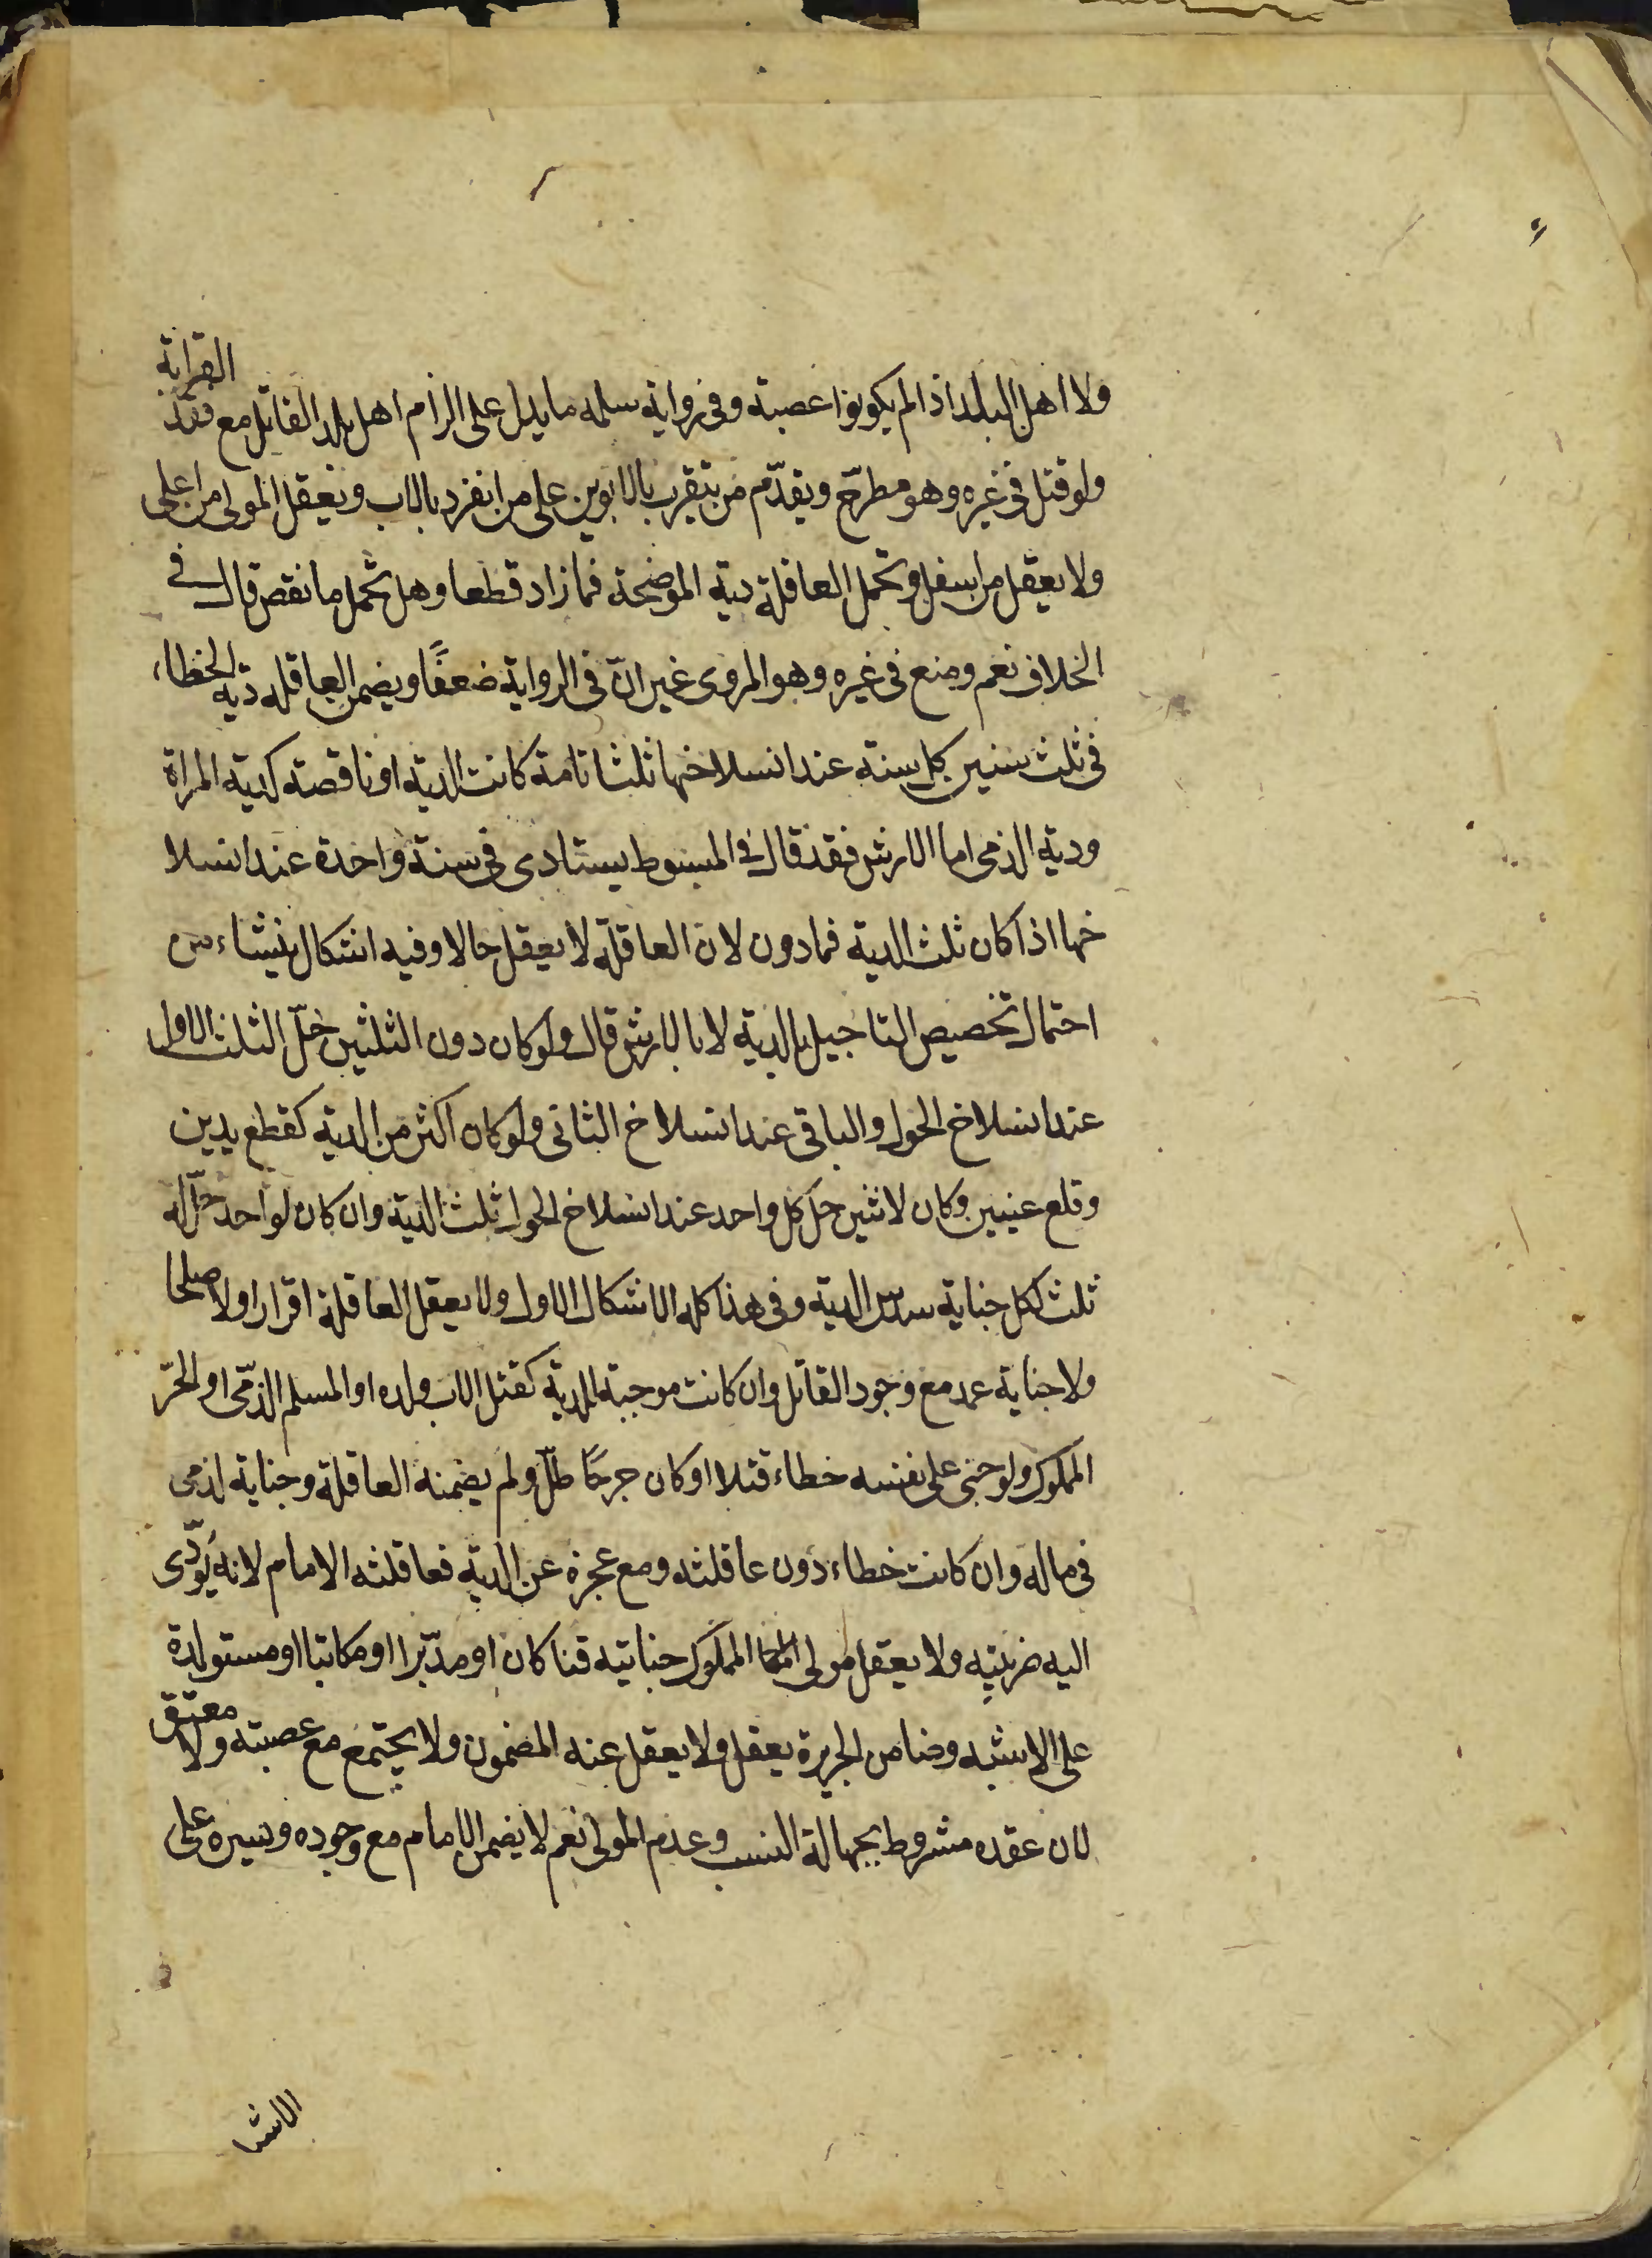 ولا اهل البلد اذا لم يكونوا عصبة وفى رواية سلمه ما يدل على الزام اهل بلد القاتل مع فقد القرابة
ولو قتل فى غيره وهو مطرح ويقدّم من يتقرب بالابوين على من انفرد بالاب ويعقل المولى من اعلى
ولا يعقل من اسفل وتحمل العاقلة دية الموضحة فما زاد قطعا وهل تحمل ما نقص قال فى
الخلاف نعم ومنع فى غيره وهو المروى غير انّ فى الرواية ضعفًا ويضمن العاقله دية الخطاء
فى ثلث سنين كل سنة عند انسلاخها ثلثا تامة كانت الدية او ناقصته كدية المراة
ودية الذمى اما الارش فقد قال فى المبسوط يستادى فى سنة واحدة عند انسلا
خها اذا كان ثلث الدية فما دون لان العاقلة لا يعقل حالا وفيه اشكال ينشاء من
احتمال تخصيص التاجيل بالدية لا بالارش قال ولو كان دون الثلثين حلّ الثلث الاول
عند انسلاخ الحول والباقى عند انسلاخ الثانى ولو كان اكثر من الدية كقطع يدين
وقلع عينين وكان لاثنين حل كل واحد عند انسلاخ الحول ثلث الدية وان كان لواحد حلّ له
ثلث لكل جناية سدس الدية وفى هذا كله الاشكال الاول ولا يعقل العاقلة اقرارا ولا صلحا
ولا جناية عمد مع وجود القاتل وان كانت موجبة للدية كقتل الاب ولده او المسلم الذمّى او الحرّ
المملوك ولو جنى على نفسه خطاء قتلا او كان جرحًا طلّ ولم يضمنه العاقلة وجناية الذمى
فى ماله وان كانت خطاء دون عاقلته ومع عجزه عن الدية فعاقلته الامام لانه يُؤدّى
اليه ضريبته ولا يعقل مولى المملوك جنايته قنا كان او مدبّرا او مكاتبا او مستولدة
على الاشبه وضامن الجريرة يعقل ولا يعقل عنه المضمون ولا يجتمع مع عصبته ولا معتق
لان عقده مشروط بجهالة النسب وعدم المولى نعم لا يضمن الامام مع وجوده ويسيره على
الاشبـ